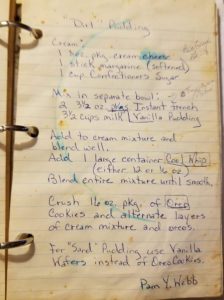 "Dirt" Pudding
Cream
1 8oz. pkg. cream cheese
1 stick margarine (softened)
1 cup Confectioners Sugar
Mix in separate bowl:
2 3½ oz pkgs Instant French
3½ cups milk Vanilla Pudding
Add to cream mixture and
blend well.
Add 1 large container Cool Whip
(either 12 or 16 oz)
Blend entire mixture until smooth.
Crush 16 oz. pkg. of Oreo
Cookies and alternate layers
of cream mixture and oreos.
For "Sand" Pudding use Vanilla
Wafers instead of Oreo Cookies.
Pam Y. Webb